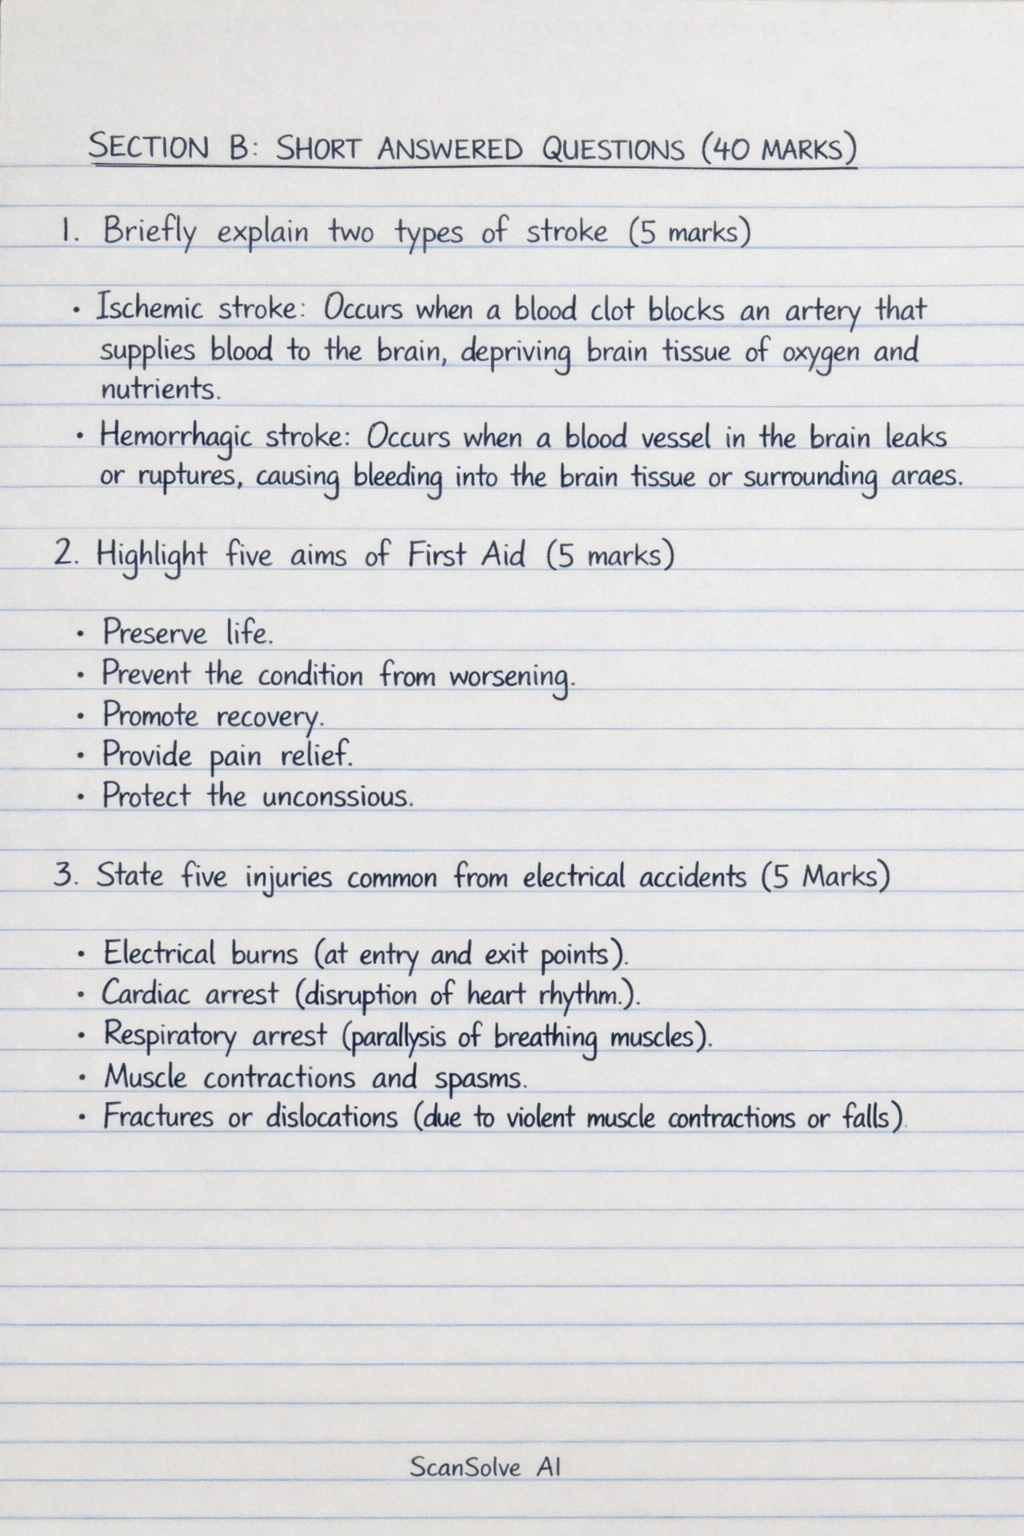 SECTION B: SHORT ANSWERED QUESTIONS (40 MARKS)
1. Briefly explain two types of stroke (5 marks)
• Ischemic stroke: Occurs when a blood clot blocks an artery that
supplies blood to the brain, depriving brain tissue of oxygen and
nutrients.
• Hemorrhagic stroke: Occurs when a blood vessel in the brain leaks
or ruptures, causing bleeding into the brain tissue or surrounding araes.
2. Highlight five aims of First Aid (5 marks)
• Preserve life.
• Prevent the condition from worsening.
• Promote recovery.
• Provide pain relief.
• Protect the unconssious.
3. State five injuries common from electrical accidents (5 Marks)
• Electrical burns (at entry and exit points).
• Cardiac arrest (disruption of heart rhythm.).
• Respiratory arrest (parallysis of breathing muscles).
• Muscle contractions and spasms.
• Fractures or dislocations (due to violent muscle contractions or falls).
ScanSolve AI